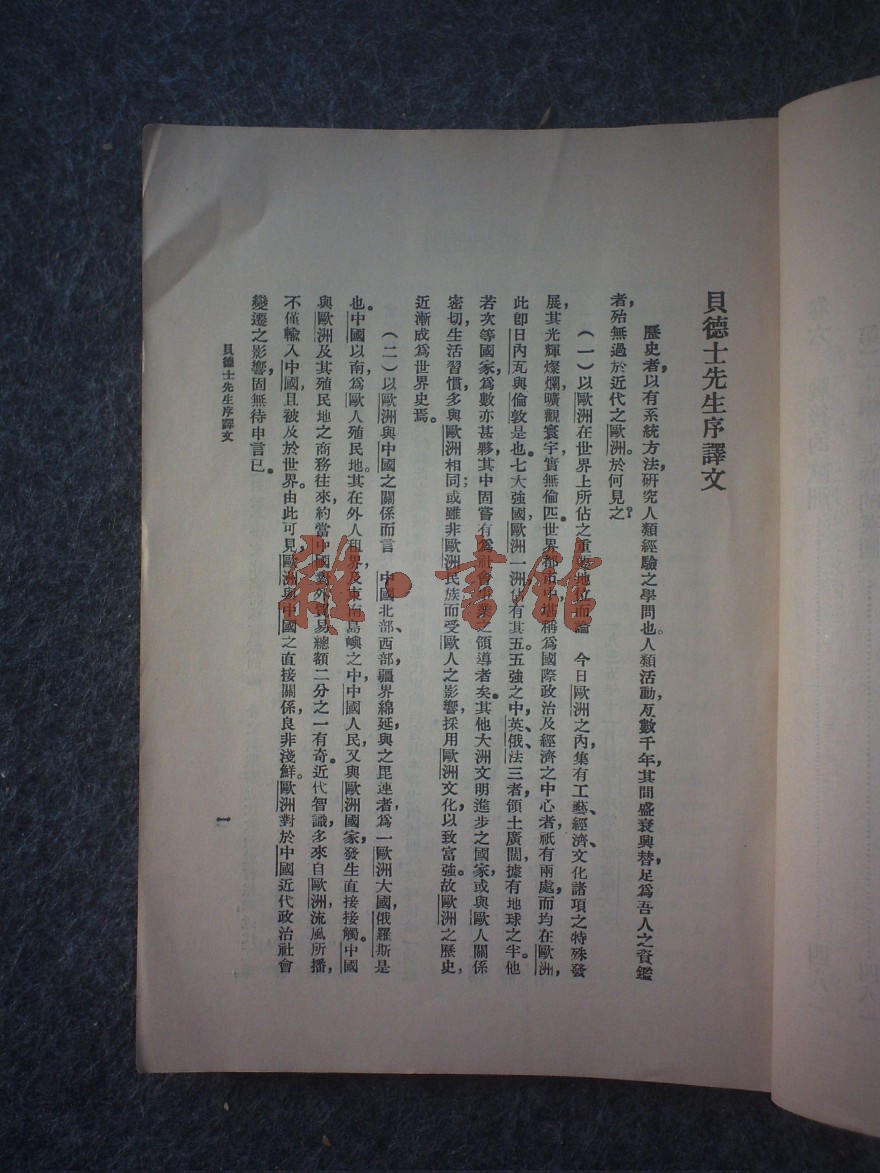 貝德士先生序譯文
歷史者，以有系統方法，研究人類經驗之學問也。人類活動，亙數千年，其間盛衰興替，足爲吾人之資鑑
者，殆無過於近代之歐洲。於何見之？
（一）以歐洲在世界上所佔之重要地位而論　今日歐洲之內，集有工藝、經濟、文化諸項之特殊發
展，其光輝燦爛，曠觀寰宇，實無倫匹。世界都市中，堪稱爲國際政治及經濟之中心者，祇有兩處，而均在歐洲，
此卽日內瓦與倫敦是也。七大強國，歐洲一洲佔有其五。五強之中，英、俄、法三者，領土廣闊，據有地球之半。他
若次等國家，爲數亦甚夥，其中固嘗有爲社會事業之領導者矣。其他大洲文明進步之國家，或與歐人關係
密切，生活習慣，多與歐洲相同；或雖非歐洲民族，而受歐人之影響，採用歐洲文化，以致富強。故歐洲之歷史，
近漸成爲世界史焉。
（二）以歐洲與中國之關係而言　中國北部、西部，疆界綿延，與之毘連者，爲一歐洲大國，俄羅斯是
也。中國以南，爲歐人殖民地。其在外人租界及東南島嶼之中，中國人民又與歐洲國家，發生直接接觸。中國
與歐洲及其殖民地之商務往來，約當中國對外貿易總額二分之一有奇。近代智識，多來自歐洲，流風所播，
不僅輸入中國，且被及於世界。由此可見，歐洲與中國之直接關係，良非淺鮮。歐洲對於中國近代政治社會
變遷之影響，固無待申言已。
貝德士先生序譯文
一
雜·書館